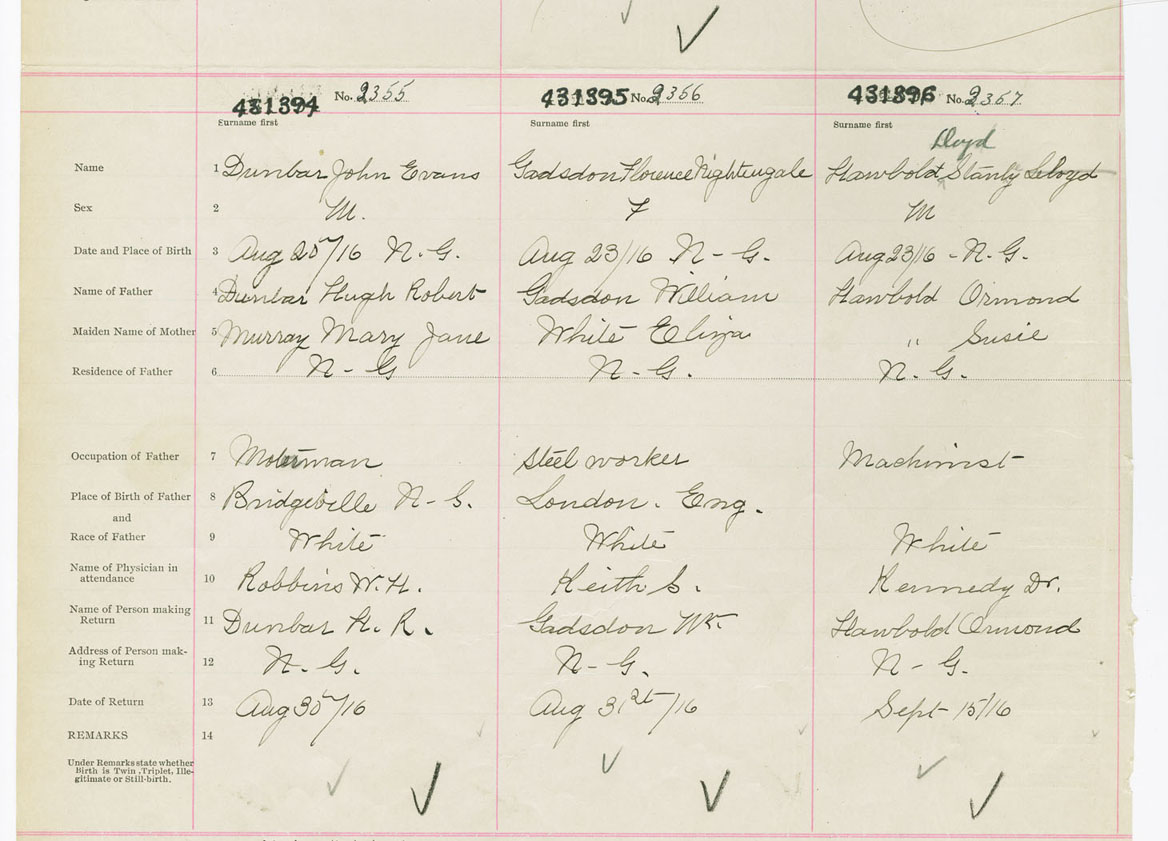 431394 No. 2355 431395 No. 2356 431396 No. 2357
Surname first Surname first Surname first
Lloyd
Name 1 Dunbar John Evans Gadsdon Florence Nightengale Hawbold Stanly
Sex 2 M. F M
Date and Place of Birth 3 Aug 20/16 N.G. Aug 23/16 N-G. Aug 23/16 - N.G.
Name of Father 4 Dunbar Hugh Robert Gadsdon William Hawbold Ormond
Maiden Name of Mother 5 Murray Mary Jane White Eliza " Susie
Residence of Father 6 N-G N-G. N.G.
Occupation of Father 7 Steel worker Machinist
Place of Birth of Father 8 Bridgeville N-G. London. Eng.
and
Race of Father 9 White White White
Name of Physician in
attendance 10 Robbins W.H. Keith S. Kennedy Dr.
Name of Person making
Return 11 Dunbar H.R. Gadsdon Wm. Hawbold Ormond
Address of Person mak-
ing Return 12 N.G. N-G. N-G.
Date of Return 13 Aug 30/16 Aug 31st/16 Sept 15/16
REMARKS 14
Under Remarks state whether
Birth is Twin, Triplet, Ille-
gitimate or Still-birth.